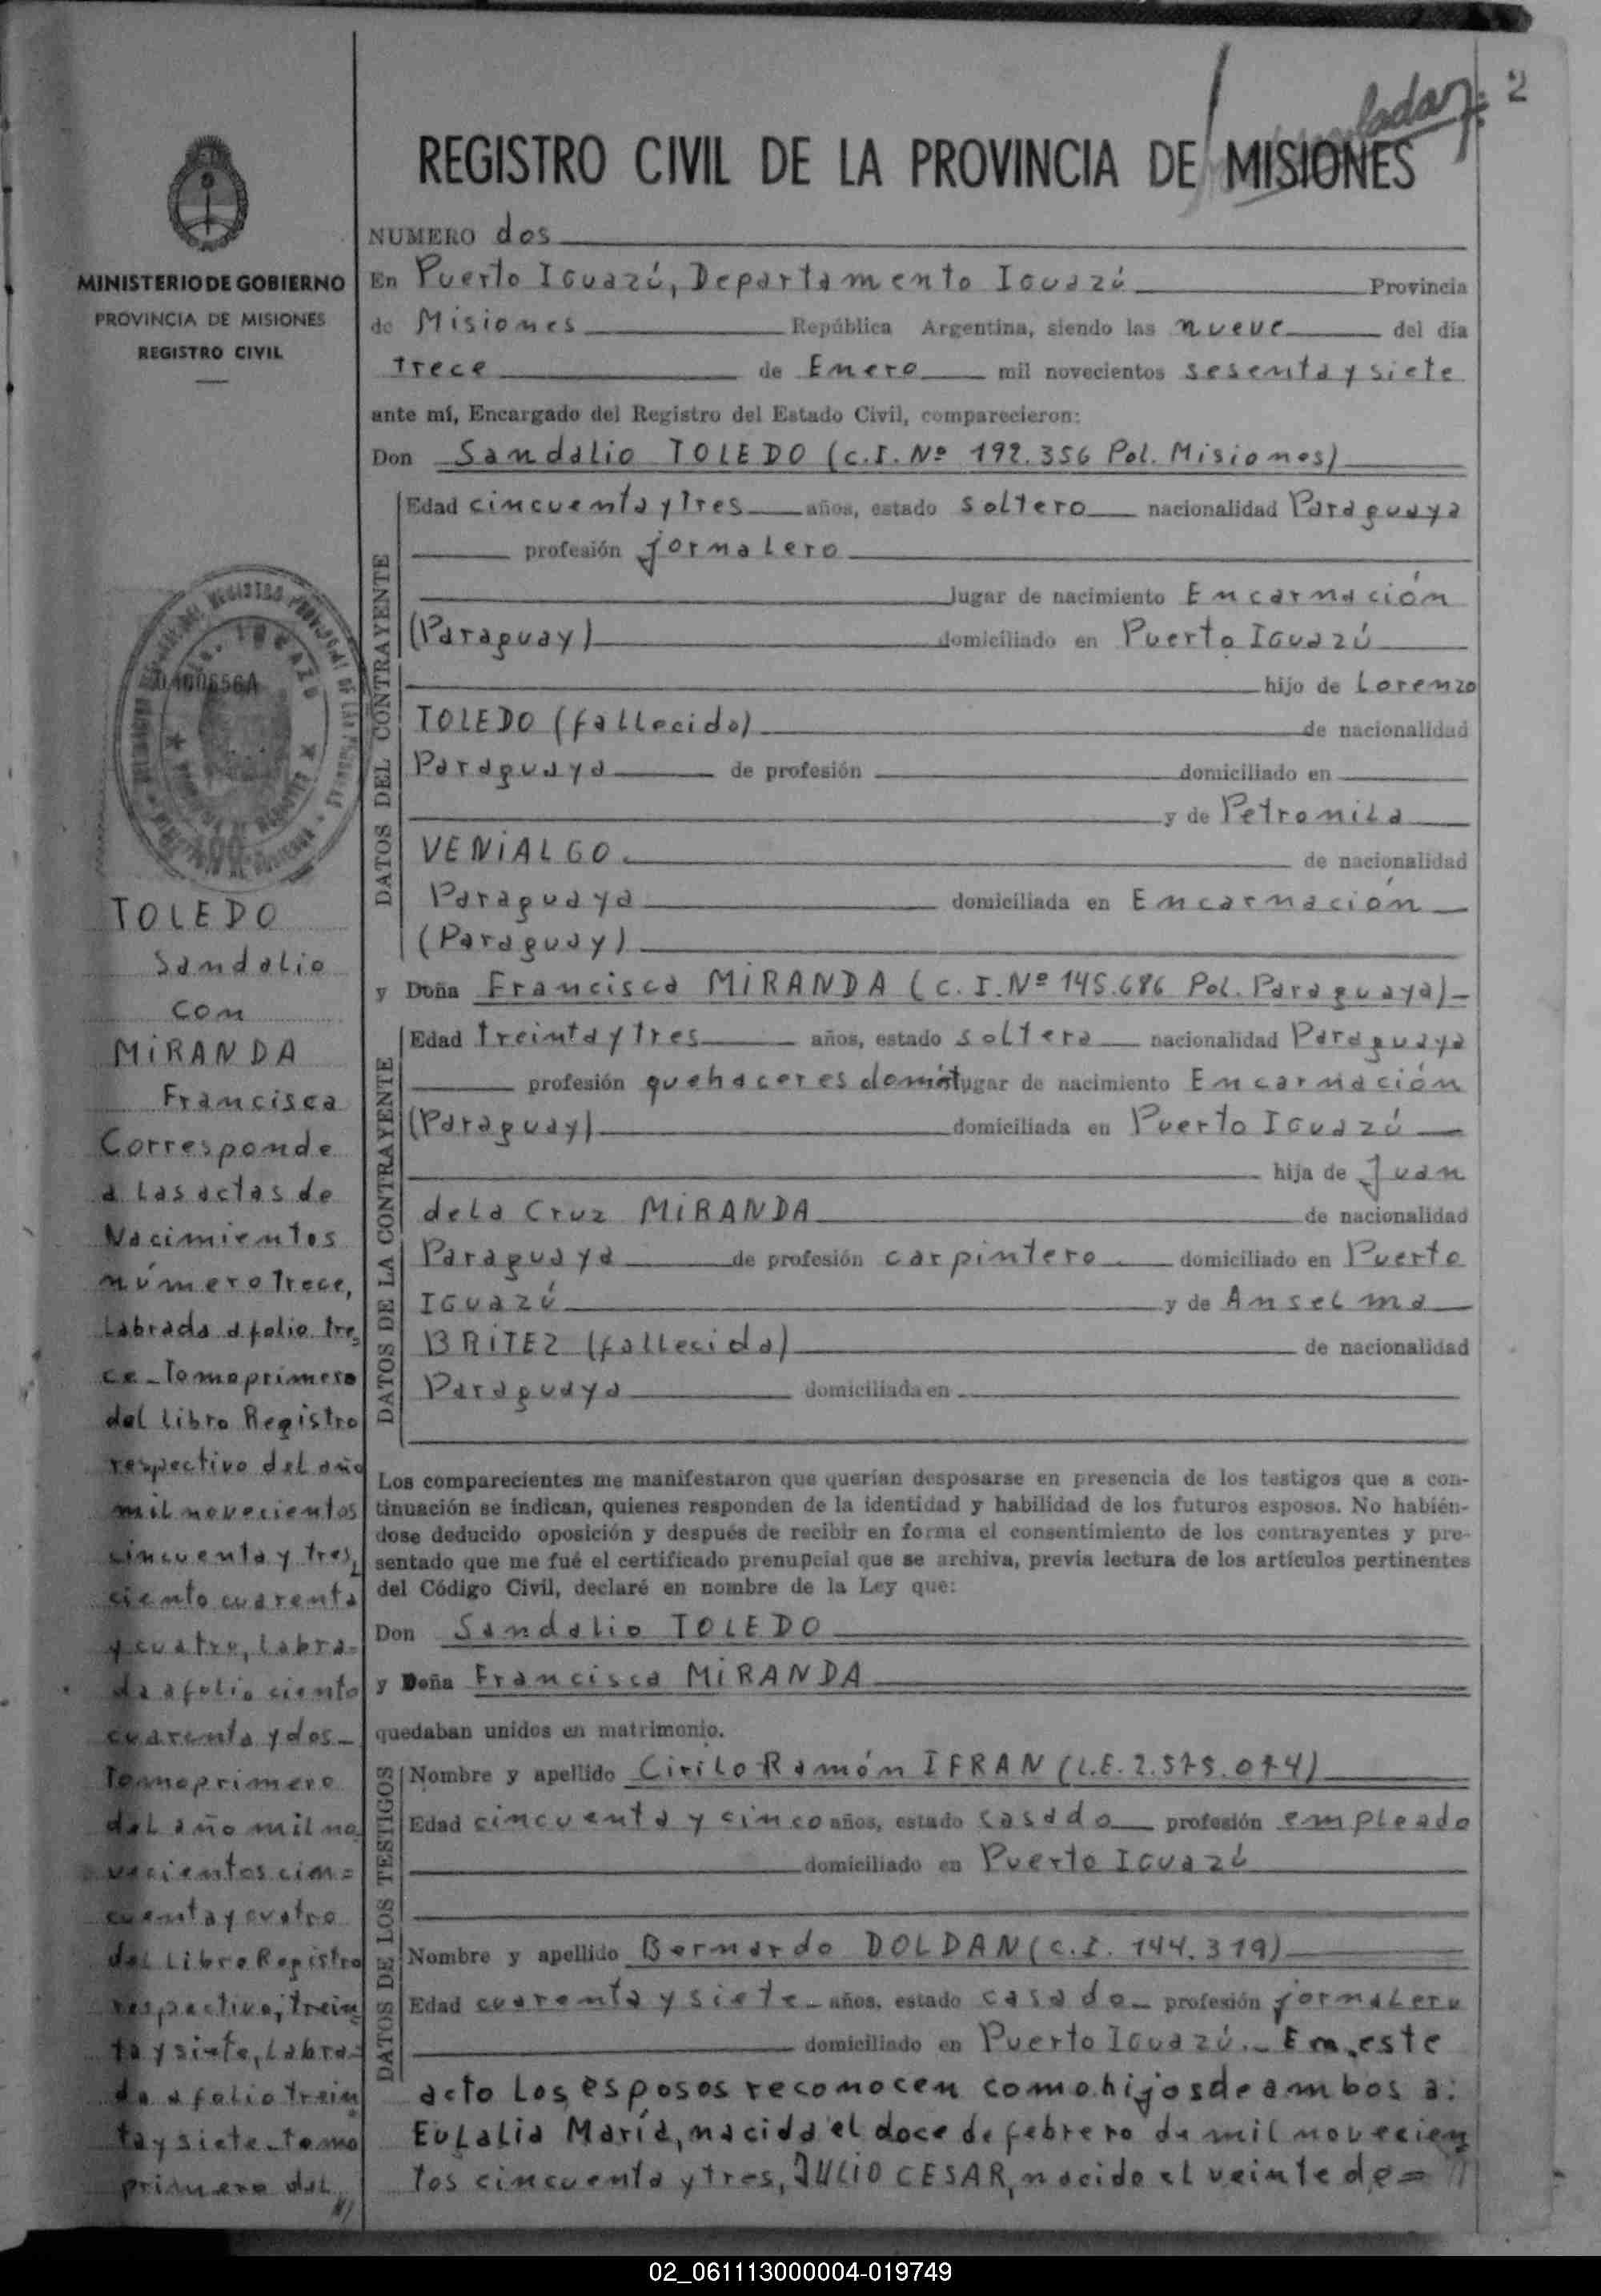 2
REGISTRO CIVIL DE LA PROVINCIA DE MISIONES
MINISTERIO DE GOBIERNO
PROVINCIA DE MISIONES
REGISTRO CIVIL
NUMERO dos
En Puerto Iguazú, Departamento Iguazú Provincia
de Misiones República Argentina, siendo las nueve del día
trece de Enero mil novecientos sesenta y siete
ante mí, Encargado del Registro del Estado Civil, comparecieron:
Don Sandalio TOLEDO (C.I. Nº 192.356 Pol. Misiones)
DATOS DEL CONTRAYENTE
Edad cincuenta y tres años, estado soltero nacionalidad Paraguaya
profesión jornalero
lugar de nacimiento Encarnación
(Paraguay) domiciliado en Puerto Iguazú
hijo de Lorenzo
TOLEDO (fallecido) de nacionalidad
Paraguaya de profesión domiciliado en
y de Petronila
VENIALGO de nacionalidad
Paraguaya domiciliada en Encarnación
(Paraguay)
y Doña Francisca MIRANDA (C.I. Nº 145.686 Pol. Paraguaya)
DATOS DE LA CONTRAYENTE
Edad treinta y tres años, estado soltera nacionalidad Paraguaya
profesión quehaceres domést lugar de nacimiento Encarnación
(Paraguay) domiciliada en Puerto Iguazú
hija de Juan
de la Cruz MIRANDA de nacionalidad
Paraguaya de profesión carpintero domiciliado en Puerto
Iguazú y de Anselma
BRITEZ (fallecida) de nacionalidad
Paraguaya domiciliada en
Los comparecientes me manifestaron que querían desposarse en presencia de los testigos que a con-
tinuación se indican, quienes responden de la identidad y habilidad de los futuros esposos. No habién-
dose deducido oposición y después de recibir en forma el consentimiento de los contrayentes y pre-
sentado que me fué el certificado prenupcial que se archiva, previa lectura de los artículos pertinentes
del Código Civil, declaré en nombre de la Ley que:
Don Sandalio TOLEDO
y Doña Francisca MIRANDA
quedaban unidos en matrimonio.
DATOS DE LOS TESTIGOS
Nombre y apellido Cirilo Ramón IFRAN (L.E. 2.575.074)
Edad cincuenta y cinco años, estado casado profesión empleado
domiciliado en Puerto Iguazú
Nombre y apellido Bernardo DOLDAN (C.I. 144.319)
Edad cuarenta y siete años, estado casado profesión jornalero
domiciliado en Puerto Iguazú.- En este
acto los esposos reconocen como hijos de ambos a:
Eulalia María, nacida el doce de febrero de mil novecien
tos cincuenta y tres, JULIO CESAR, nacido el veinte de=//
TOLEDO
Sandalio
con
MIRANDA
Francisca
Corresponde
a las actas de
Nacimientos
número trece,
labrada a folio tre
ce- Tomo primero
del libro Registro
respectivo del año
mil novecientos
cincuenta y tres,
ciento cuarenta
y cuatro, labra-
da a folio ciento
cuarenta y dos-
Tomo primero
del año mil no
vecientos cin=
cuenta y cuatro
del Libro Registro
respectivo, trein
ta y siete, labra-
da a folio trein
ta y siete-tomo
primero del //
02_061113000004-019749